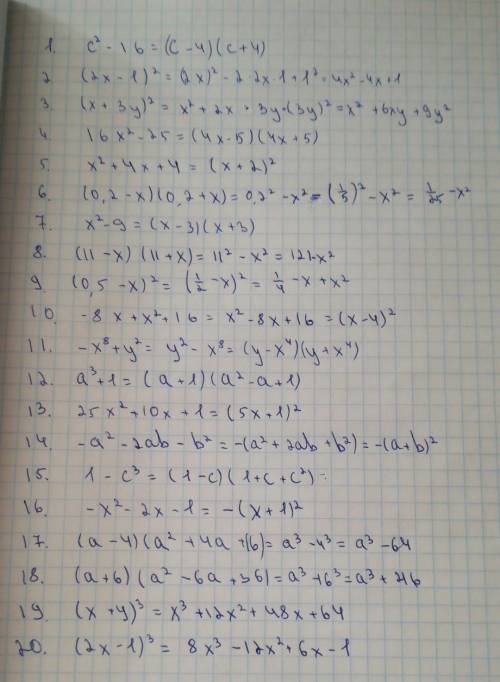 1. c² - 16 = (c - 4)(c + 4)
2 (2x - 1)² = (2x)² - 2·2x·1 + 1² = 4x² - 4x + 1
3. (x + 3y)² = x² + 2x · 3y · (3y)² = x² + 6xy + 9y²
4. 16x² - 25 = (4x - 5)(4x + 5)
5. x² + 4x + 4 = (x + 2)²
6. (0,2 - x)(0,2 + x) = 0,2² - x² = (1/5)² - x² = 1/25 - x²
7. x² - 9 = (x - 3)(x + 3)
8. (11 - x)(11 + x) = 11² - x² = 121 - x²
9. (0,5 - x)² = (1/2 - x)² = 1/4 - x + x²
10. -8x + x² + 16 = x² - 8x + 16 = (x - 4)²
11. -x⁸ + y² = y² - x⁸ = (y - x⁴)(y + x⁴)
12. a³ + 1 = (a + 1)(a² - a + 1)
13. 25x² + 10x + 1 = (5x + 1)²
14. -a² - 2ab - b² = -(a² + 2ab + b²) = -(a + b)²
15. 1 - c³ = (1 - c)(1 + c + c²)
16. -x² - 2x - 1 = -(x + 1)²
17. (a - 4)(a² + 4a + 16) = a³ - 4³ = a³ - 64
18. (a + 6)(a² - 6a + 36) = a³ + 6³ = a³ + 216
19. (x + 4)³ = x³ + 12x² + 48x + 64
20. (2x - 1)³ = 8x³ - 12x² + 6x - 1